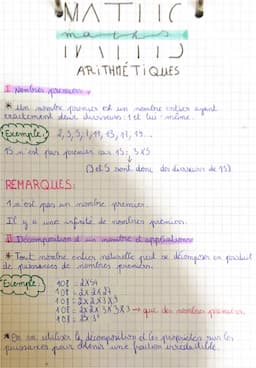 MATHS
maths
ARITHMÉTIQUES
I Nombres premiers
* Un nombre premier est un nombre entier ayant
exactement deux diviseurs : 1 et lui-même.
Exemple: 2, 3, 5, 7, 11, 13, 17, 19...
15 n'est pas premier car 15 = 3x5
(3 et 5 sont donc des diviseurs de 15)
REMARQUES:
1 n'est pas un nombre premier.
Il y a une infinité de nombres premiers.
II Décomposition d'un nombre et applications
* Tout nombre entier naturelle peut se décomposer en produit
de puissances de nombres premiers.
Exemple: 108 = 2x54
108 = 2x2x27
108 = 2x2x3x9
108 = 2x2x3x3x3 → que des nombres premiers.
108 = 2²x3³
* On va utiliser la décomposition et les propriétés sur les
puissances pour obtenir une fraction irréductible.